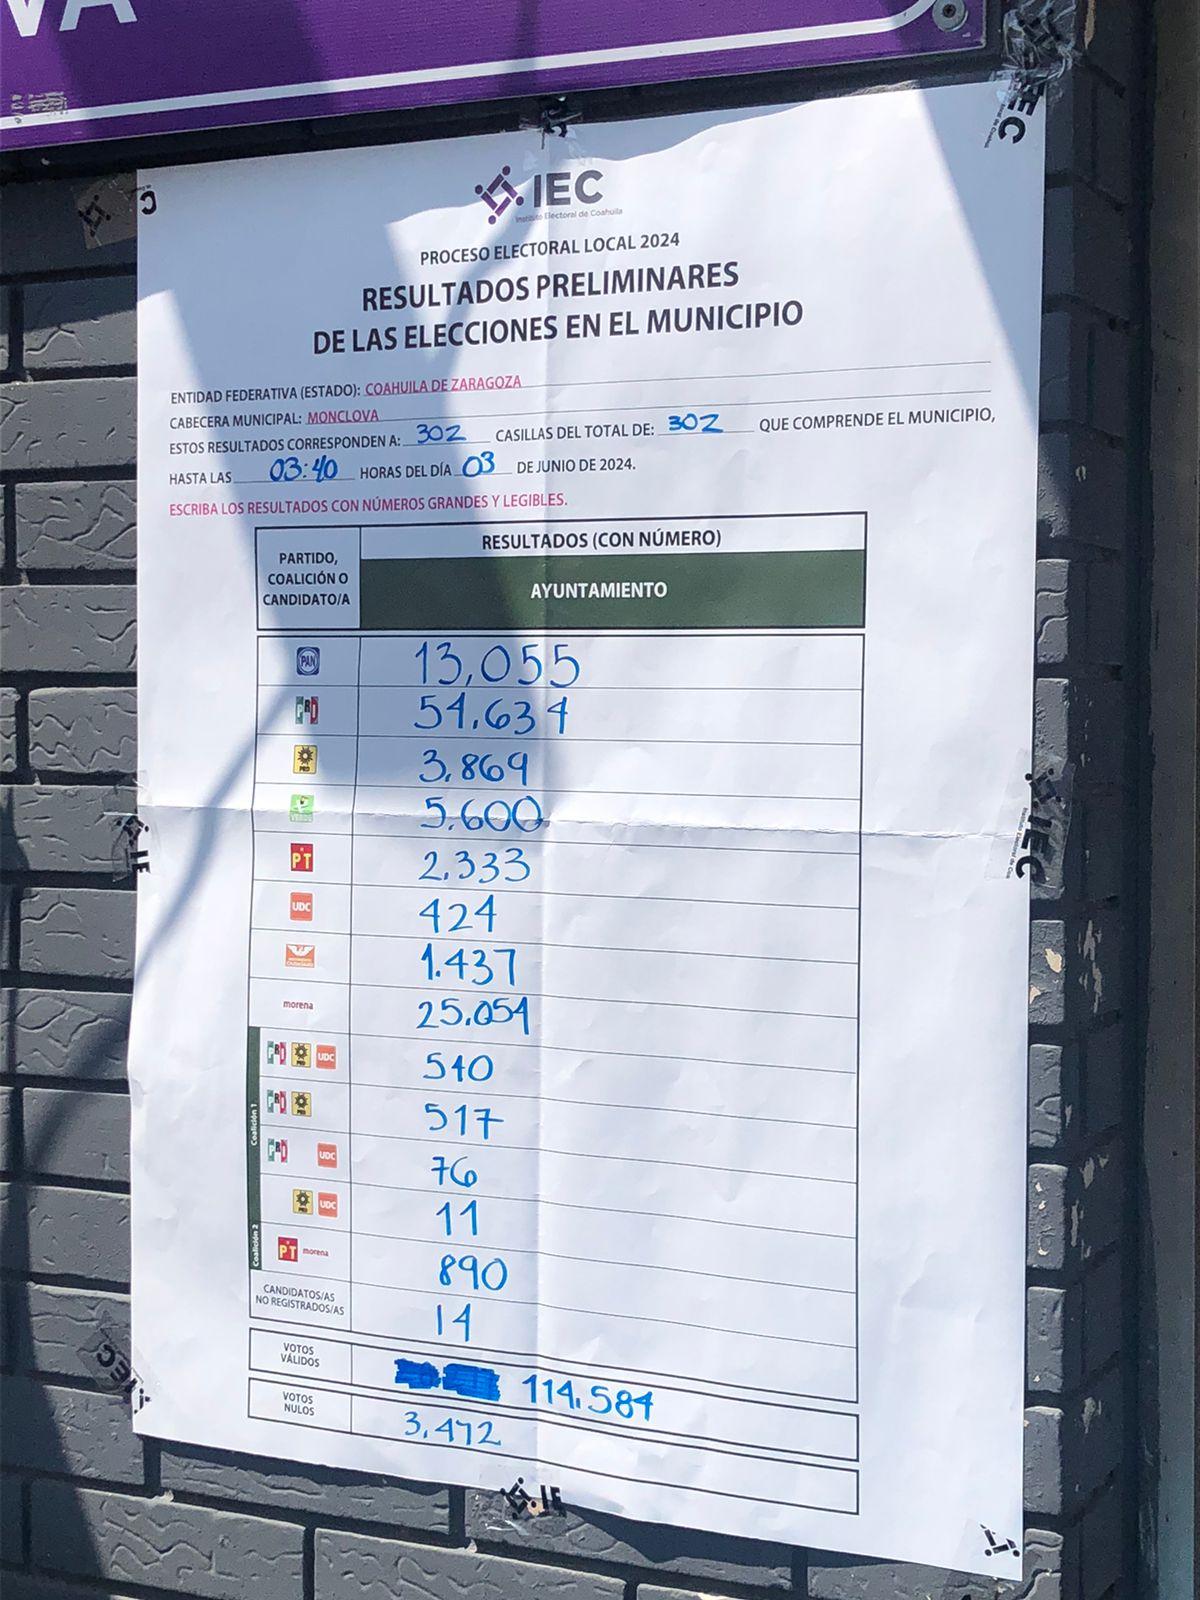 VA
IEC
Instituto Electoral de Coahuila
PROCESO ELECTORAL LOCAL 2024
RESULTADOS PRELIMINARES
DE LAS ELECCIONES EN EL MUNICIPIO
ENTIDAD FEDERATIVA (ESTADO): COAHUILA DE ZARAGOZA
CABECERA MUNICIPAL: MONCLOVA
ESTOS RESULTADOS CORRESPONDEN A: 302 CASILLAS DEL TOTAL DE: 302 QUE COMPRENDE EL MUNICIPIO,
HASTA LAS 03:40 HORAS DEL DÍA 03 DE JUNIO DE 2024.
ESCRIBA LOS RESULTADOS CON NÚMEROS GRANDES Y LEGIBLES.
PARTIDO,
COALICIÓN O
CANDIDATO/A
RESULTADOS (CON NÚMERO)
AYUNTAMIENTO
PAN 13,055
PRI 54.634
PRD 3,869
VERDE 5.600
PT 2.333
UDC 424
MOVIMIENTO CIUDADANO 1.437
morena 25.054
Coalición 1
PRI PRD UDC 540
PRI PRD 517
PRI UDC 76
PRD UDC 11
Coalición 2
PT morena 890
CANDIDATOS/AS
NO REGISTRADOS/AS
14
VOTOS
VÁLIDOS
114.584
VOTOS
NULOS
3,472
IEC
IEC
IEC